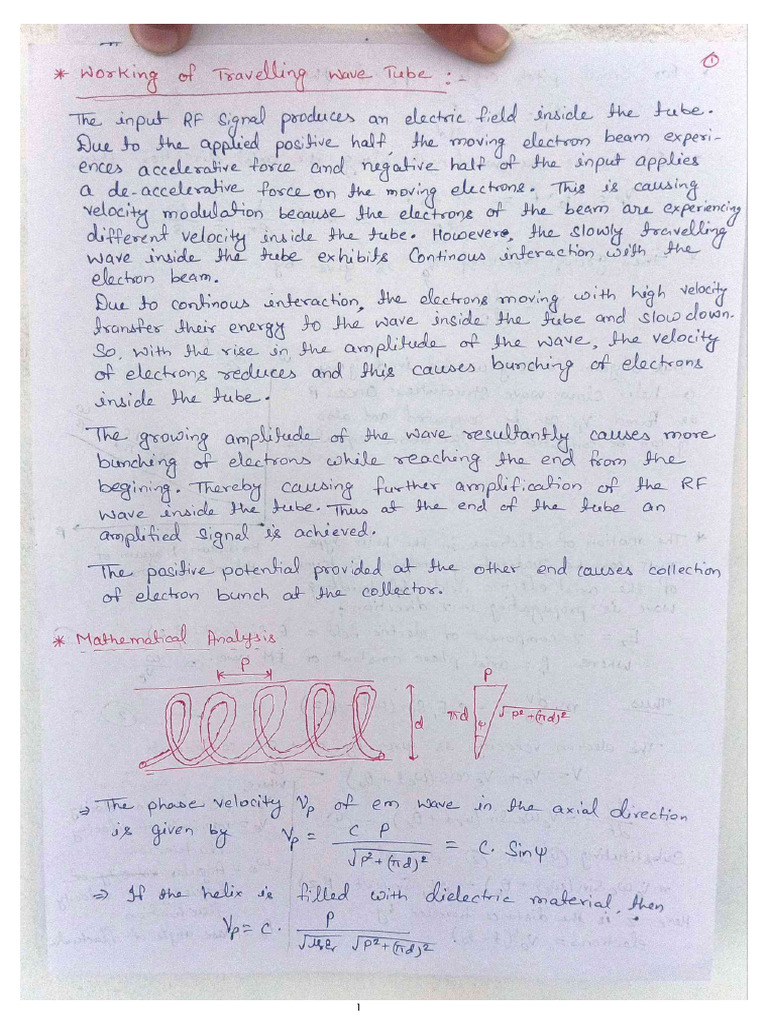 ①
* Working of Travelling Wave Tube :-
The input RF signal produces an electric field inside the tube.
Due to the applied positive half, the moving electron beam experi-
ences accelerative force and negative half of the input applies
a de-accelerative force on the moving electrons. This is causing
velocity modulation because the electrons of the beam are experiencing
different velocity inside the tube. However, the slowly travelling
wave inside the tube exhibits Continous interaction with the
electron beam.
Due to continous interaction, the electrons moving with high velocity
transfer their energy to the wave inside the tube and slow down.
So, with the rise in the amplitude of the wave, the velocity
of electrons reduces and this causes bunching of electrons
inside the tube.
The growing amplitude of the wave resultantly causes more
bunching of electrons while reaching the end from the
begining. Thereby causing further amplification of the RF
wave inside the tube. Thus at the end of the tube an
amplified signal is achieved.
The positive potential provided at the other end causes collection
of electron bunch at the collector.
* Mathematical Analysis
P
d
P
πd
ψ
√P²+(πd)²
⇒ The phase velocity Vp of em wave in the axial direction
is given by Vp = C P / √P²+(πd)² = C. Sinψ
⇒ If the helix is filled with dielectric material, then
Vp = C . P / √μrεr √P²+(πd)²
1